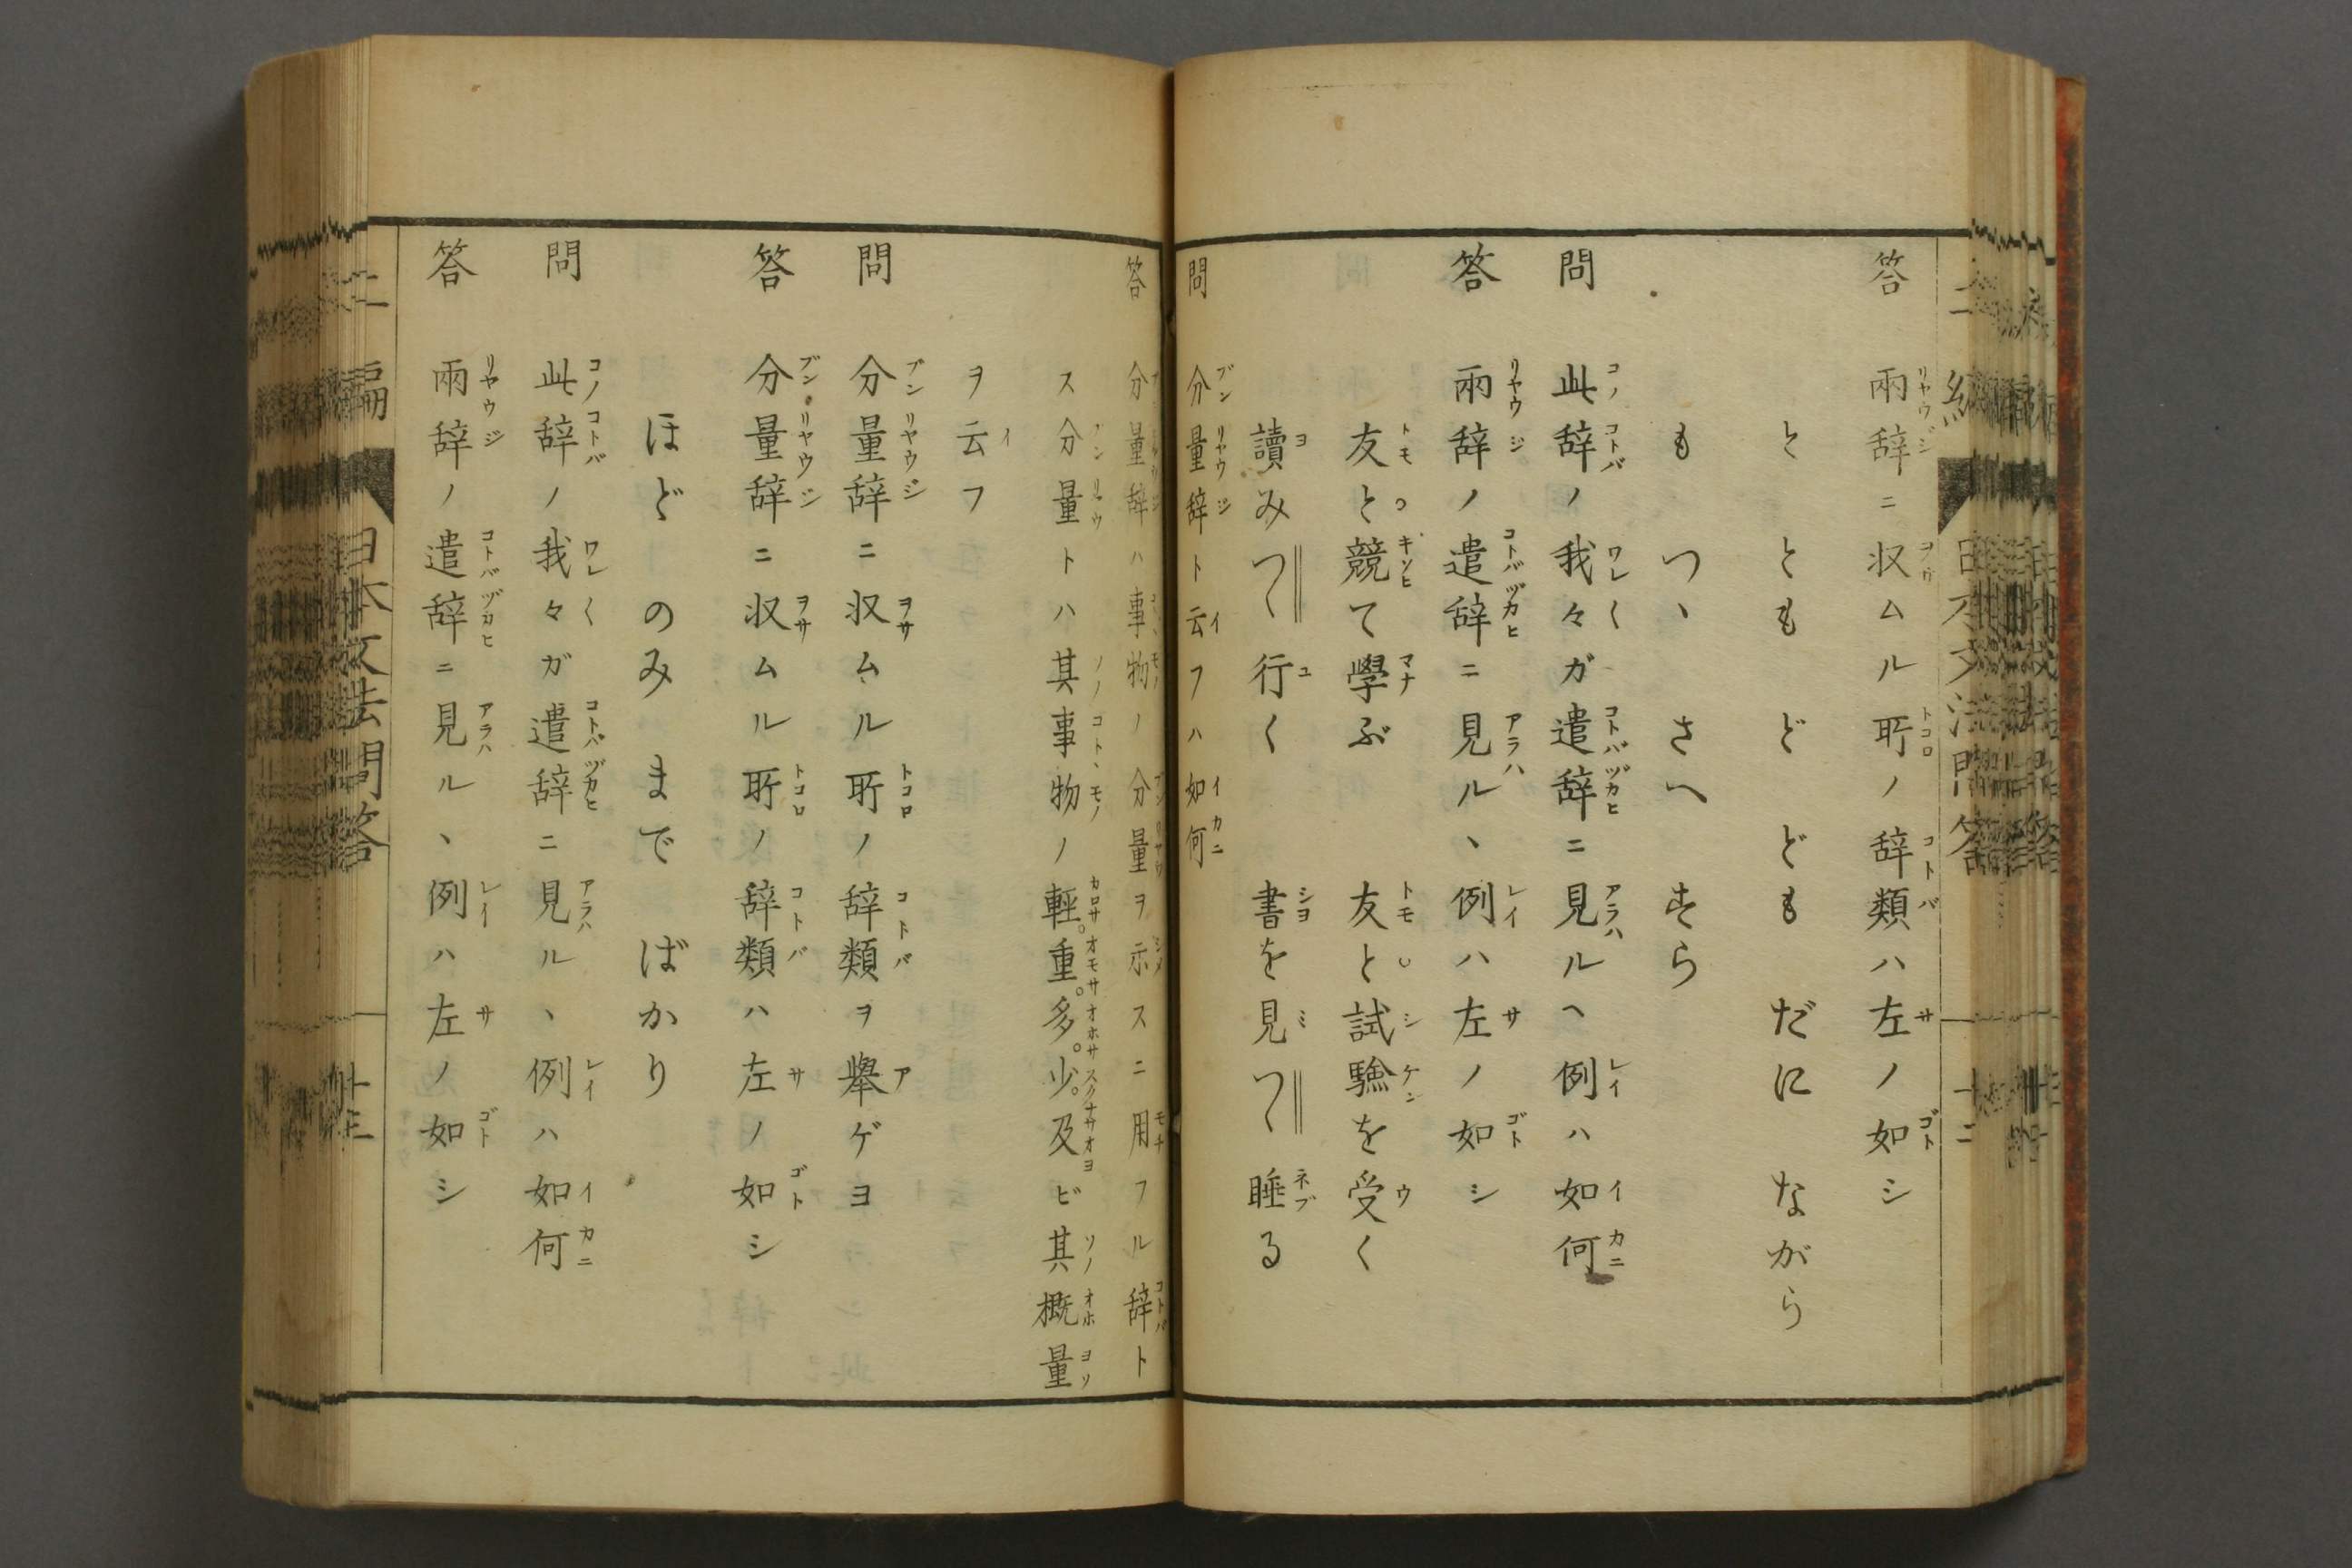 答 兩辞ニ収ムル所ノ辞類ハ左ノ如シ
と とも ど ども だに ながら
も つゝ さへ すら
問 此辞ノ我々ガ遣辞ニ見ルヽ例ハ如何
答 兩辞ノ遣辞ニ見ルヽ例ハ左ノ如シ
友と競て學ぶ 友と試驗を受く
讀みつゝ行く 書を見つゝ睡る
問 分量辞ト云フハ如何
答 分量辞ハ事物ノ分量ヲ示スニ用フル辞ト
ス分量トハ其事物ノ輕。重。多。少。及ビ其概量
ヲ云フ
問 分量辞ニ収ムル所ノ辞類ヲ擧ゲヨ
答 分量辞ニ収ムル所ノ辞類ハ左ノ如シ
ほど のみ まで ばかり
問 此辞ノ我々ガ遣辞ニ見ルヽ例ハ如何
答 兩辞ノ遣辞ニ見ルヽ例ハ左ノ如シ
二編 日本文法問答